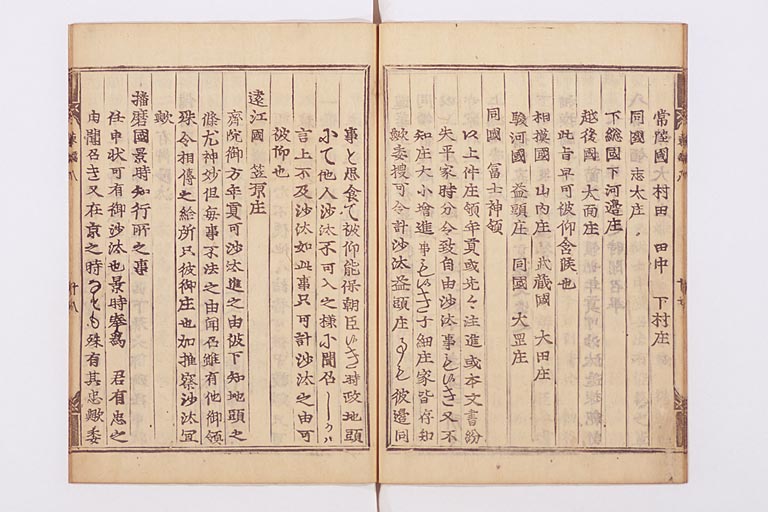 常陸國 村田 田中 下村庄
同國 志太庄
下總國 下河邊庄
越後國 大面庄
此旨早可被仰含候也
相摸國 山内庄 武藏國 大田庄
駿河國 益頭庄 同國 大罡庄
同國 冨士神領
以上件庄領年貢或先々注進或夲文書紛
失平家時分令致自由沙汰事もやいさき又不
知庄大小増進事もやいさき子細庄家皆存知
歟委搜可令計沙汰益頭庄 彼邉同
事と思食て被仰能保朝臣いさき時政地頭
小て他人沙汰不可入之樣小聞召しう八
言上不及沙汰如此事只可計沙汰之由可
被仰也
遠江國 笠原庄
齋院御方年貢可沙汰進之由彼下知地頭之
條尤神妙但毎事不法之由聞召雖有他御領
殊令相傳之給所只彼御庄也加推察沙汰冝
歟
播磨國景時知行所之事
任申状可有御沙汰也景時奉爲 君有忠之
由聞召き又在京之時 殊有其忠歟委
東鑑八
十八